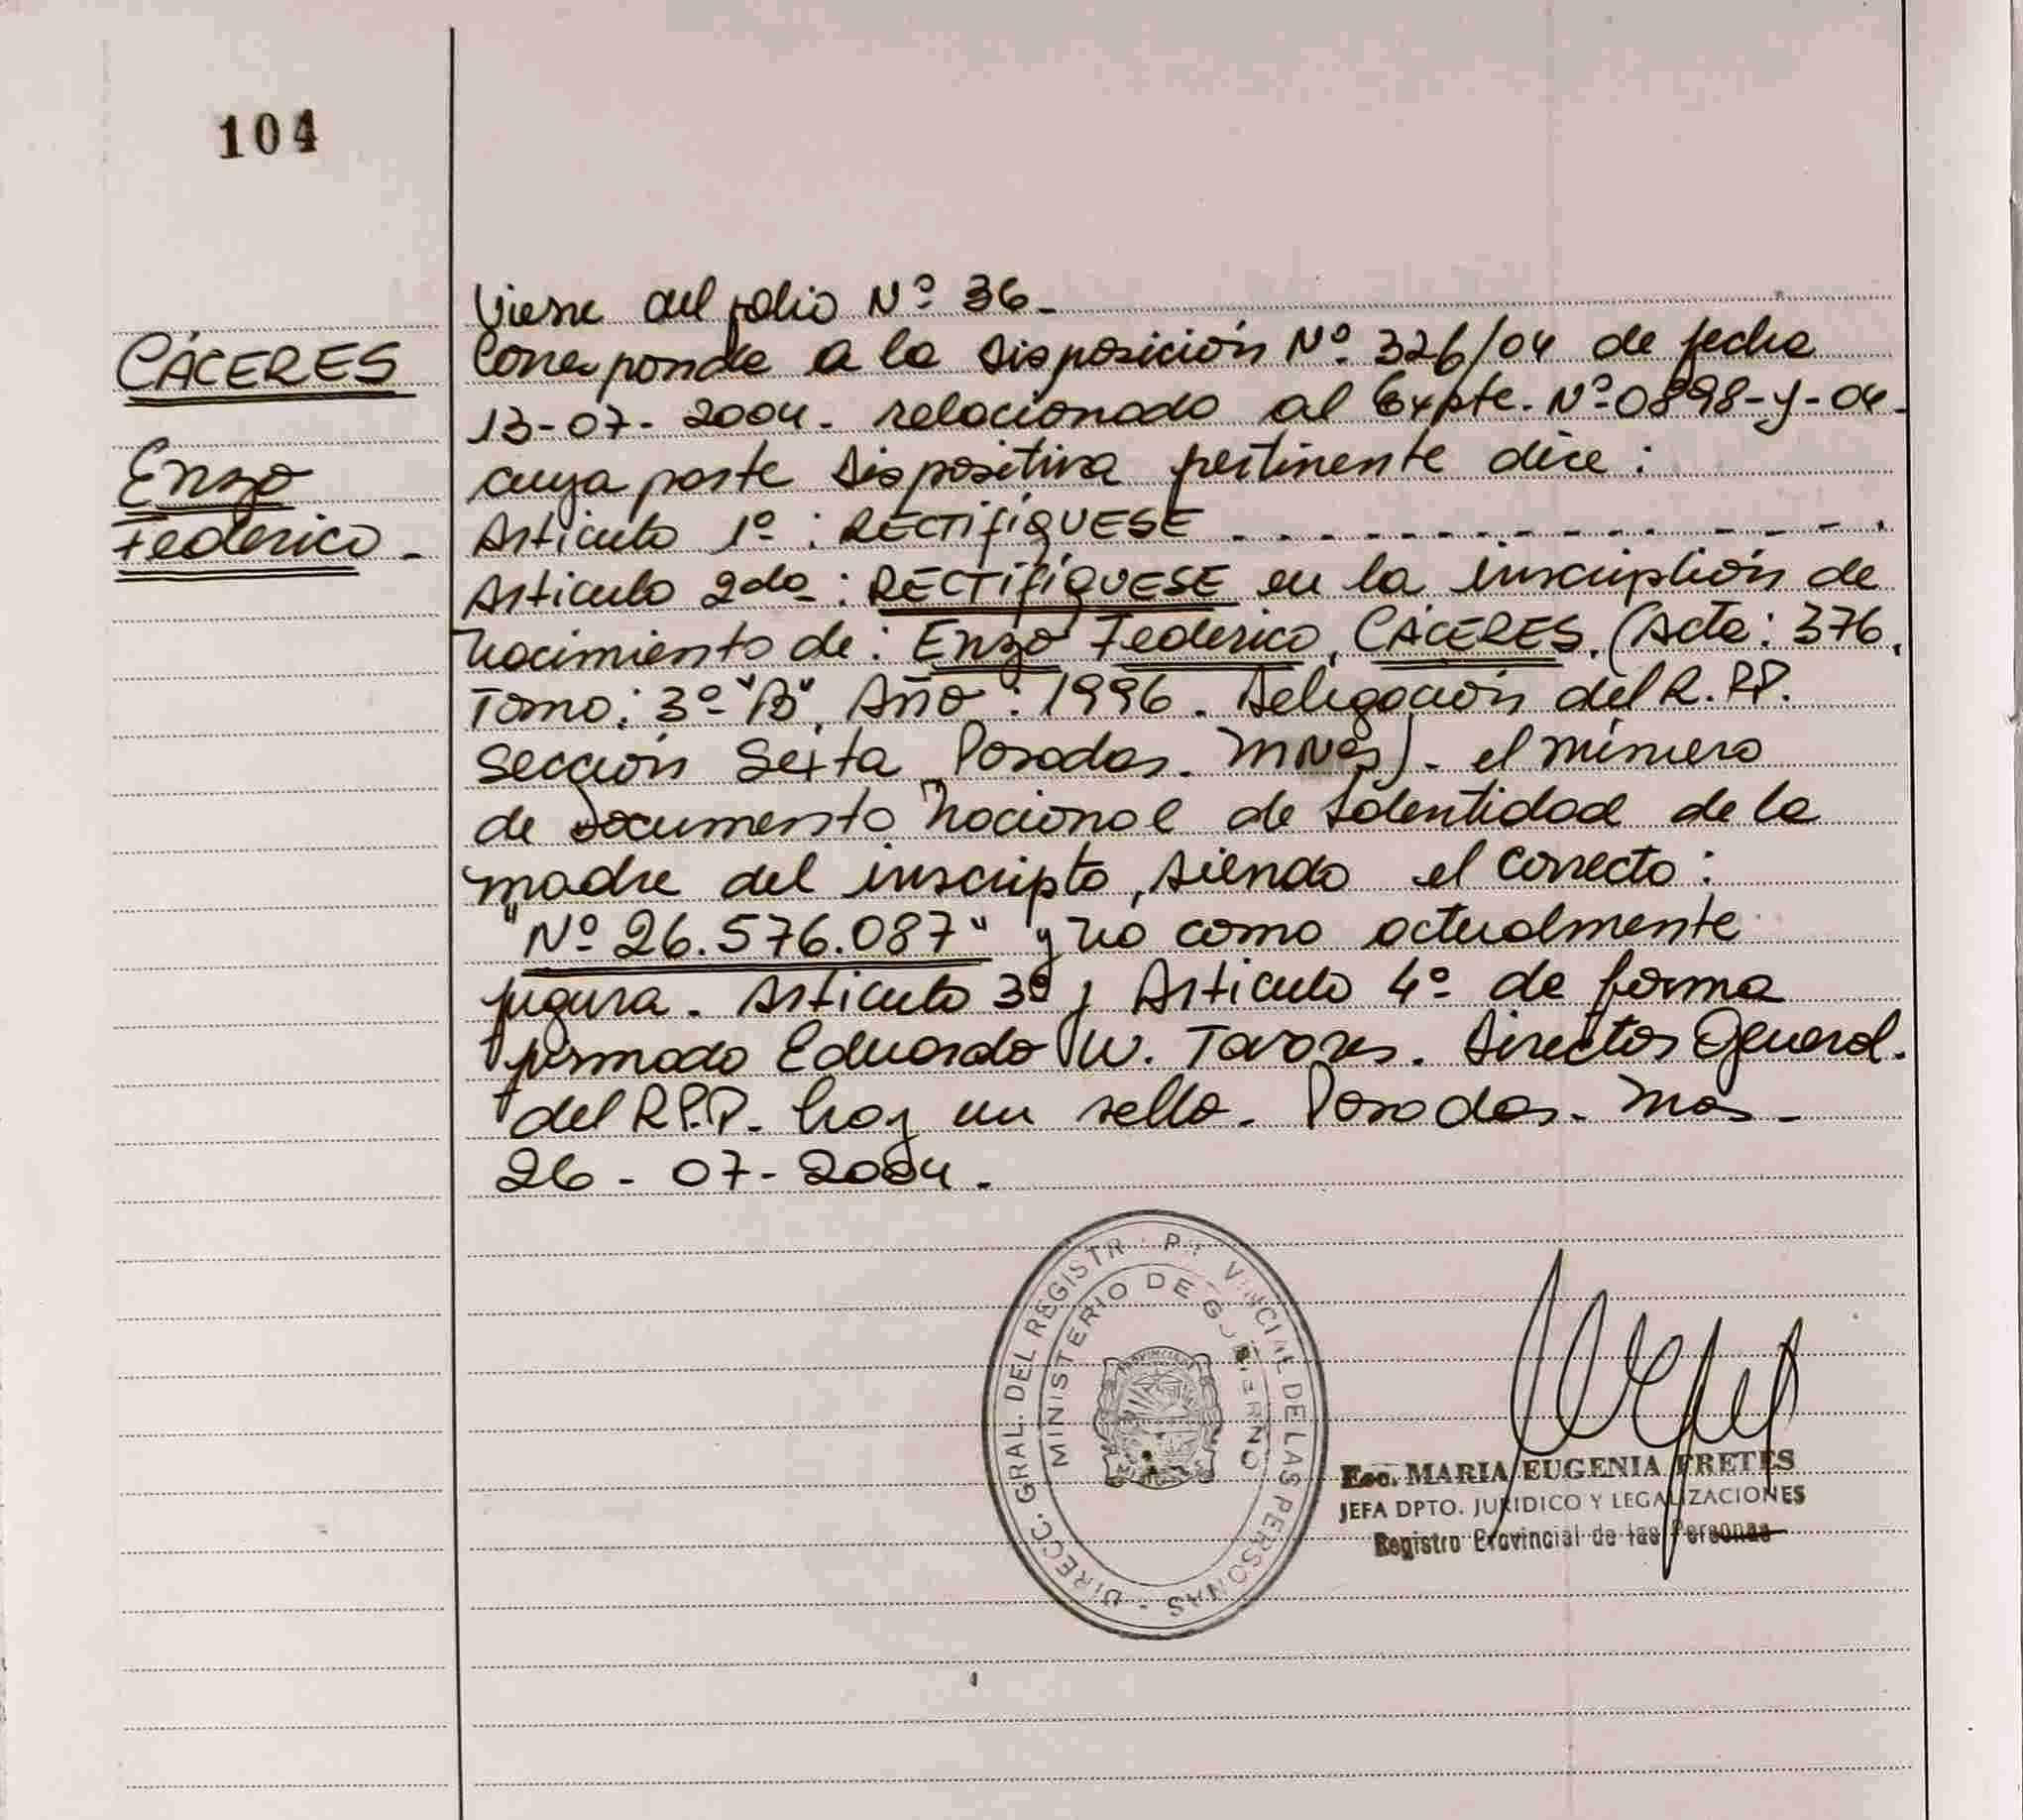 104
CÁCERES
Enzo
Federico -
Viene del folio Nº 36 -
Corresponde a la disposición Nº 326/04 de fecha
13-07-2004. relacionado al Expte. Nº 0898-Y-04-
cuya parte dispositiva pertinente dice:
Artículo 1º: RECTIFÍQUESE - - - - - - - - - - - - - - - -
Artículo 2do: RECTIFÍQUESE en la inscripción de
nacimiento de: Enzo Federico, CÁCERES. (Acta: 376,
Tomo: 3º "B", Año: 1996. Delegación del R.P.P.
Sección Sexta Posadas. Mnes) - el número
de documento Nacional de Identidad de la
madre del inscripto, siendo el correcto:
"Nº 26.576.087" y no como actualmente
figura. Artículo 3º y Artículo 4º de forma
firmado Eduardo W. Tavares. Director General.
del R.P.P. hay un sello. Posadas. Mnes -
26 - 07 - 2004.
DIRECC. GRAL. DEL REGISTR PR VINCIAL DE LAS PERSONAS -
MINISTERIO DE GOBIERNO
Esc. MARIA EUGENIA FRETES
JEFA DPTO. JURIDICO Y LEGALIZACIONES
Registro Provincial de las Personas